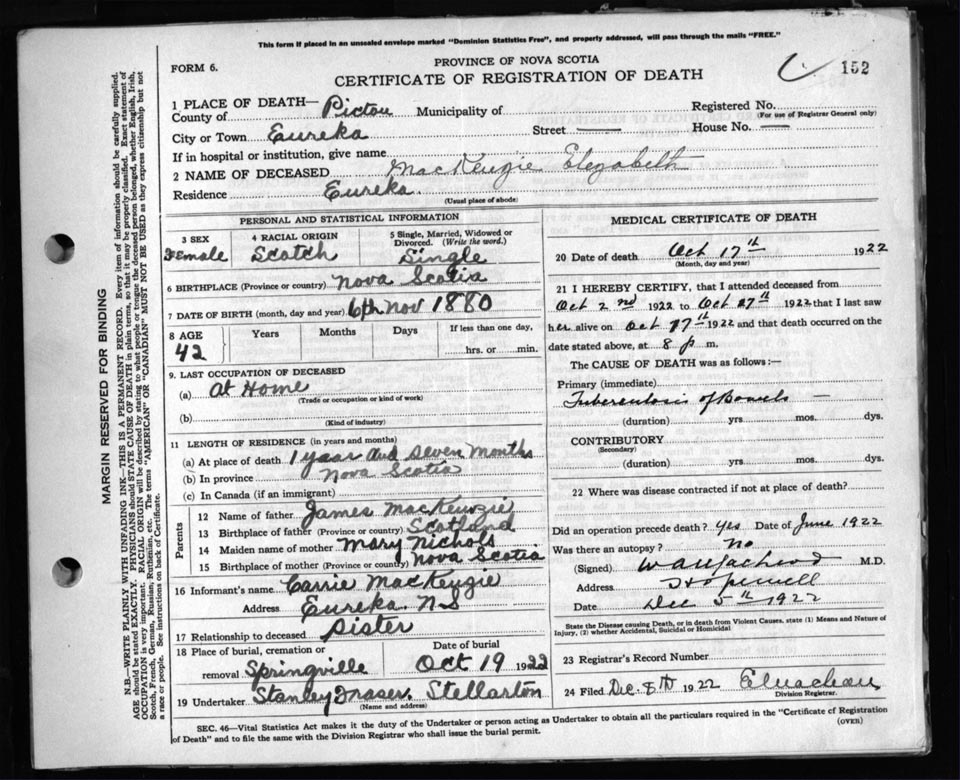 This form if placed in an unsealed envelope marked "Dominion Statistics Free", and properly addressed, will pass through the mails "FREE."
FORM 6.
PROVINCE OF NOVA SCOTIA
CERTIFICATE OF REGISTRATION OF DEATH
152
1 PLACE OF DEATH—
County of Pictou Municipality of
Registered No.
(For use of Registrar General only)
City or Town Eureka Street — House No. —
If in hospital or institution, give name
2 NAME OF DECEASED MacKenzie Elezabeth
Residence Eureka
(Usual place of abode)
PERSONAL AND STATISTICAL INFORMATION
3 SEX
Female
4 RACIAL ORIGIN
Scotch
5 Single, Married, Widowed or Divorced. (Write the word.)
Single
6 BIRTHPLACE (Province or country) Nova Scotia
7 DATE OF BIRTH (month, day and year) 6th Nov 1880
8 AGE
42
Years Months Days
If less than one day,
hrs. or min.
9. LAST OCCUPATION OF DECEASED
(a) At Home
(Trade or occupation or kind of work)
(b)
(Kind of industry)
11 LENGTH OF RESIDENCE (in years and months)
(a) At place of death 1 year and seven Months
(b) In province Nova Scotia
(c) In Canada (if an immigrant)
Parents
12 Name of father James MacKenzie
13 Birthplace of father (Province or country) Scotland
14 Maiden name of mother Mary Nichols
15 Birthplace of mother (Province or country) Nova Scotia
16 Informant's name Carrie MacKenzie
Address Eureka NS
17 Relationship to deceased Sister
18 Place of burial, cremation or removal Springville
Date of burial
Oct 19 1922
19 Undertaker Stanley Fraser. Stellarton
(Name and address)
MEDICAL CERTIFICATE OF DEATH
20 Date of death Oct 17th 1922
(Month, day and year)
21 I HEREBY CERTIFY, that I attended deceased from
Oct 2nd 1922 to Oct 17th 1922 that I last saw
her alive on Oct 17th 1922 and that death occurred on the
date stated above, at 8 p m.
The CAUSE OF DEATH was as follows:—
Primary (immediate)
Tuberculosis of Bowels —
(duration) yrs. mos. dys.
CONTRIBUTORY
(Secondary)
(duration) yrs. mos. dys.
22 Where was disease contracted if not at place of death?
Did an operation precede death? Yes Date of June 1922
Was there an autopsy? No
(Signed) M.D.
Address Hopewell
Date Dec 5th 1922
State the Disease causing Death, or in death from Violent Causes, state (1) Means and Nature of
Injury, (2) whether Accidental, Suicidal or Homicidal
23 Registrar's Record Number
24 Filed Dec. 8th 1922
Division Registrar.
SEC. 46—Vital Statistics Act makes it the duty of the Undertaker or person acting as Undertaker to obtain all the particulars required in the "Certificate of Registration
of Death" and to file the same with the Division Registrar who shall issue the burial permit.
(OVER)
MARGIN RESERVED FOR BINDING
N.B.—WRITE PLAINLY WITH UNFADING INK—THIS IS A PERMANENT RECORD. Every item of information should be carefully supplied.
AGE should be stated EXACTLY. PHYSICIANS should STATE CAUSE OF DEATH in plain terms, so that it may be properly classified. Exact statement of
OCCUPATION is very important. RACIAL ORIGIN will be described by stating to what people or tongue the deceased person belonged, whether English, Irish,
Scotch, French, German, Russian, Ruthenian, etc. The terms "AMERICAN" OR "CANADIAN" MUST NOT BE USED as they express citizenship but not
a race or people. See instructions on back of Certificate.